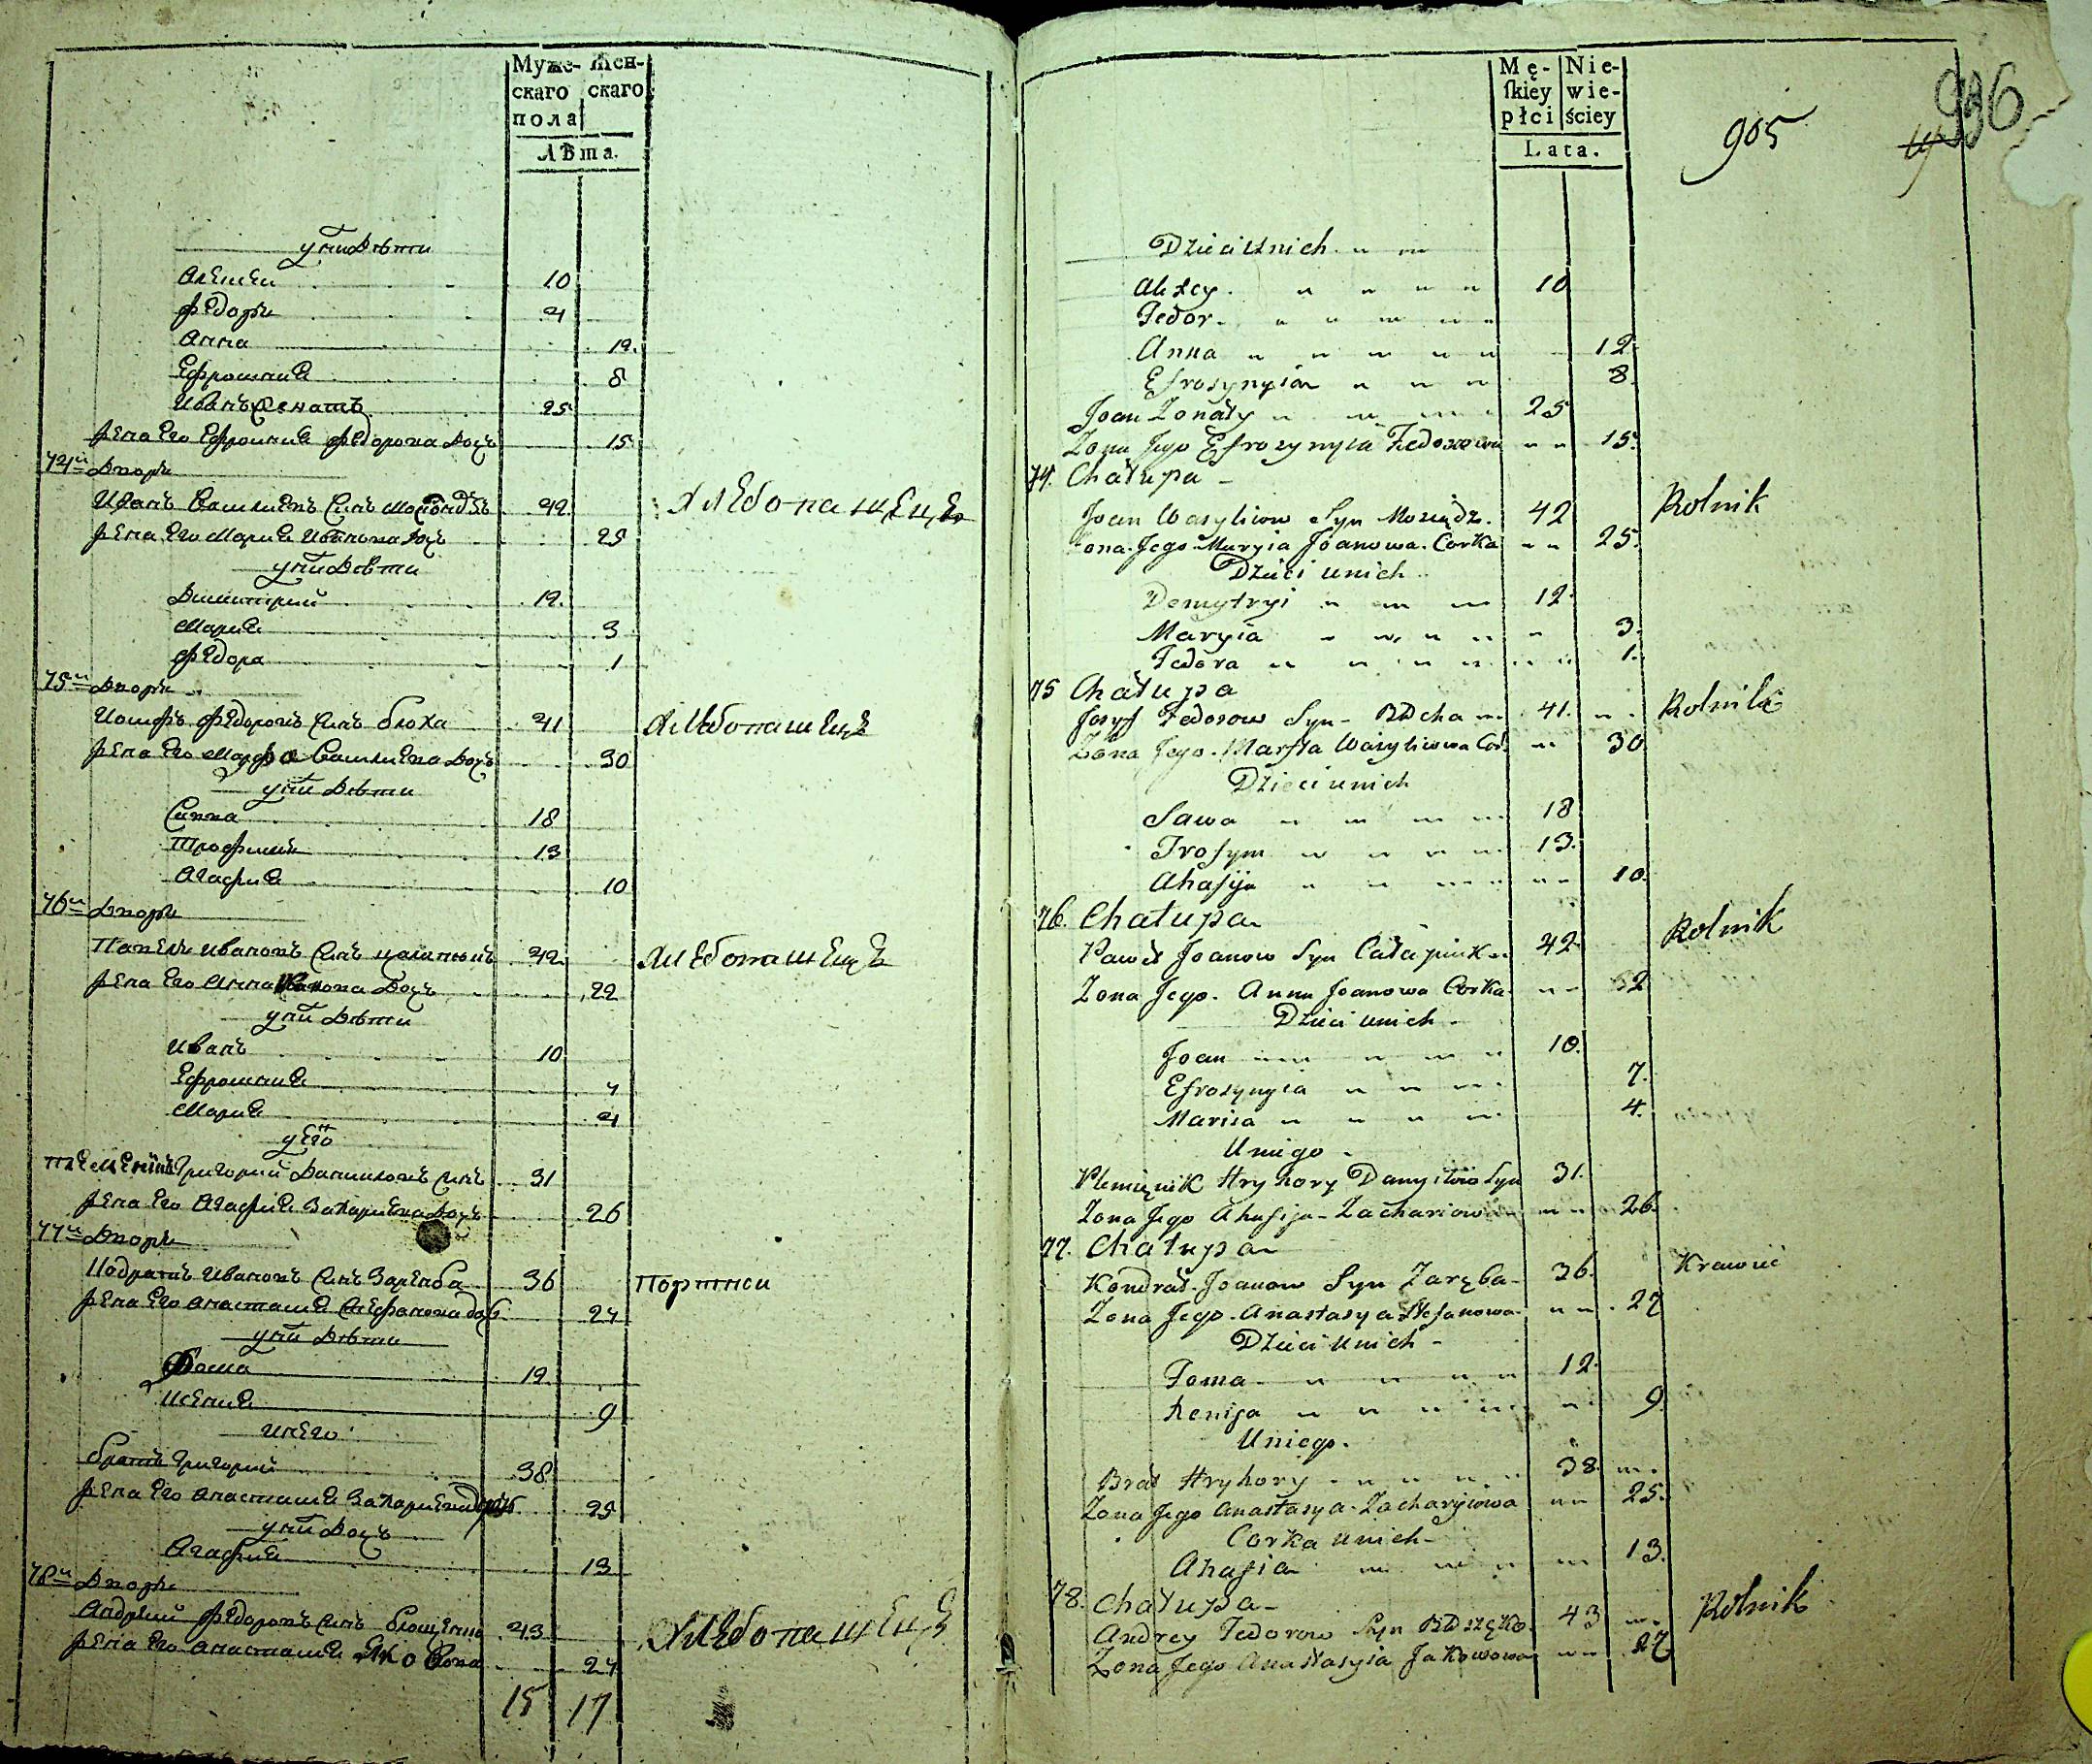 Муже- Жен-
скаго скаго
пола
Лѣта.
у них Дѣти
Алексей 10
Федоръ 4
Анна 12.
Ефросиния 8
Иванъ Зенатъ 25
жена Его Ефросиния Федорова Дочь 15
74й Дворъ
Иванъ Василиевъ Синъ 42 Хлебопашецъ
жена Его Мария Иванова Дочь 25
у них Дѣти
Димитрий 12.
Мария 3
Федора 1
75й Дворъ
Иосифъ Федоровъ Синъ блоха 41 Хлебопашецъ
жена Его Марфа Василиева Дочь 30
у них Дѣти
Савва 18
Трофимъ 13
Агафия 10
76й Дворъ
Павелъ Ивановъ Синъ 42 Хлебопашецъ
жена Его Анна Иванова Дочь 22
у них Дѣти
Иванъ 10
Ефросиния 7
Мария 4
у Его
племеникъ Григорий Даниловъ Синъ 31
жена Его Агафия Захариева Дочь 26
77й Дворъ
Кодратъ Ивановъ Синъ Заремба 36 Портной
жена Его Анастасия Стефанова дочь 27
у них Дѣти
Фома 12
Ксения 9
у Него
братъ Григорий 38
жена Его Анастасия Захариева дочь 25
у них Дочь
Агафия 13
78й Дворъ
Андрей Федоровъ Синъ блощенко 43 Хлебопашецъ
жена Его Анастасия Яковова 27
15 17
Mę- Nie-
skiey wie-
płci ściey
Lata.
905
936
Dzieci Unich
Alexey 10
Fedor
Anna 12
Efrosynyia 8
Joan Zonaty 25
Zona Jego Efrozynyia Fedorowa 15
74. Chałupa
Joan Wasyliow Syn 42 Rolnik
Zona Jego Maryia Joanowa Corka 25
Dzieci unich
Demytryi 12
Maryia 3
Fedora 1.
75 Chałupa
Josyf Fedorow Syn Błocha 41. Rolnik
Zona Jego Marfta Wasyliowa Cor 30
Dzieci unich
Sawa 18
Trofym 13.
Ahafija 10.
76. Chałupa
Paweł Joanow Syn 42 Rolnik
Zona Jego Anna Joanowa Corka 32
Dzieci unich
Joan 10.
Efrosynyia 7.
Marisa 4.
Uniego
Plemięnik Hryhory Danyiłow Syn 31.
Zona Jego Ahafija Zachariowa 26.
77. Chałupa
Kondrat Joanow Syn Zaręba 36. Krawiec
Zona Jego Anastasya Stefanowa 27
Dzieci Unich
Foma 12
Xenija 9
Uniego.
Brat Hryhory 38.
Zona Jego Anastasya Zacharyiowa 25.
Corka unich
Ahafia 13.
78. Chałupa
Andrey Fedorow Syn Błoszęko 43 Rolnik
Zona Jego Anastasyia Jakowowa 27